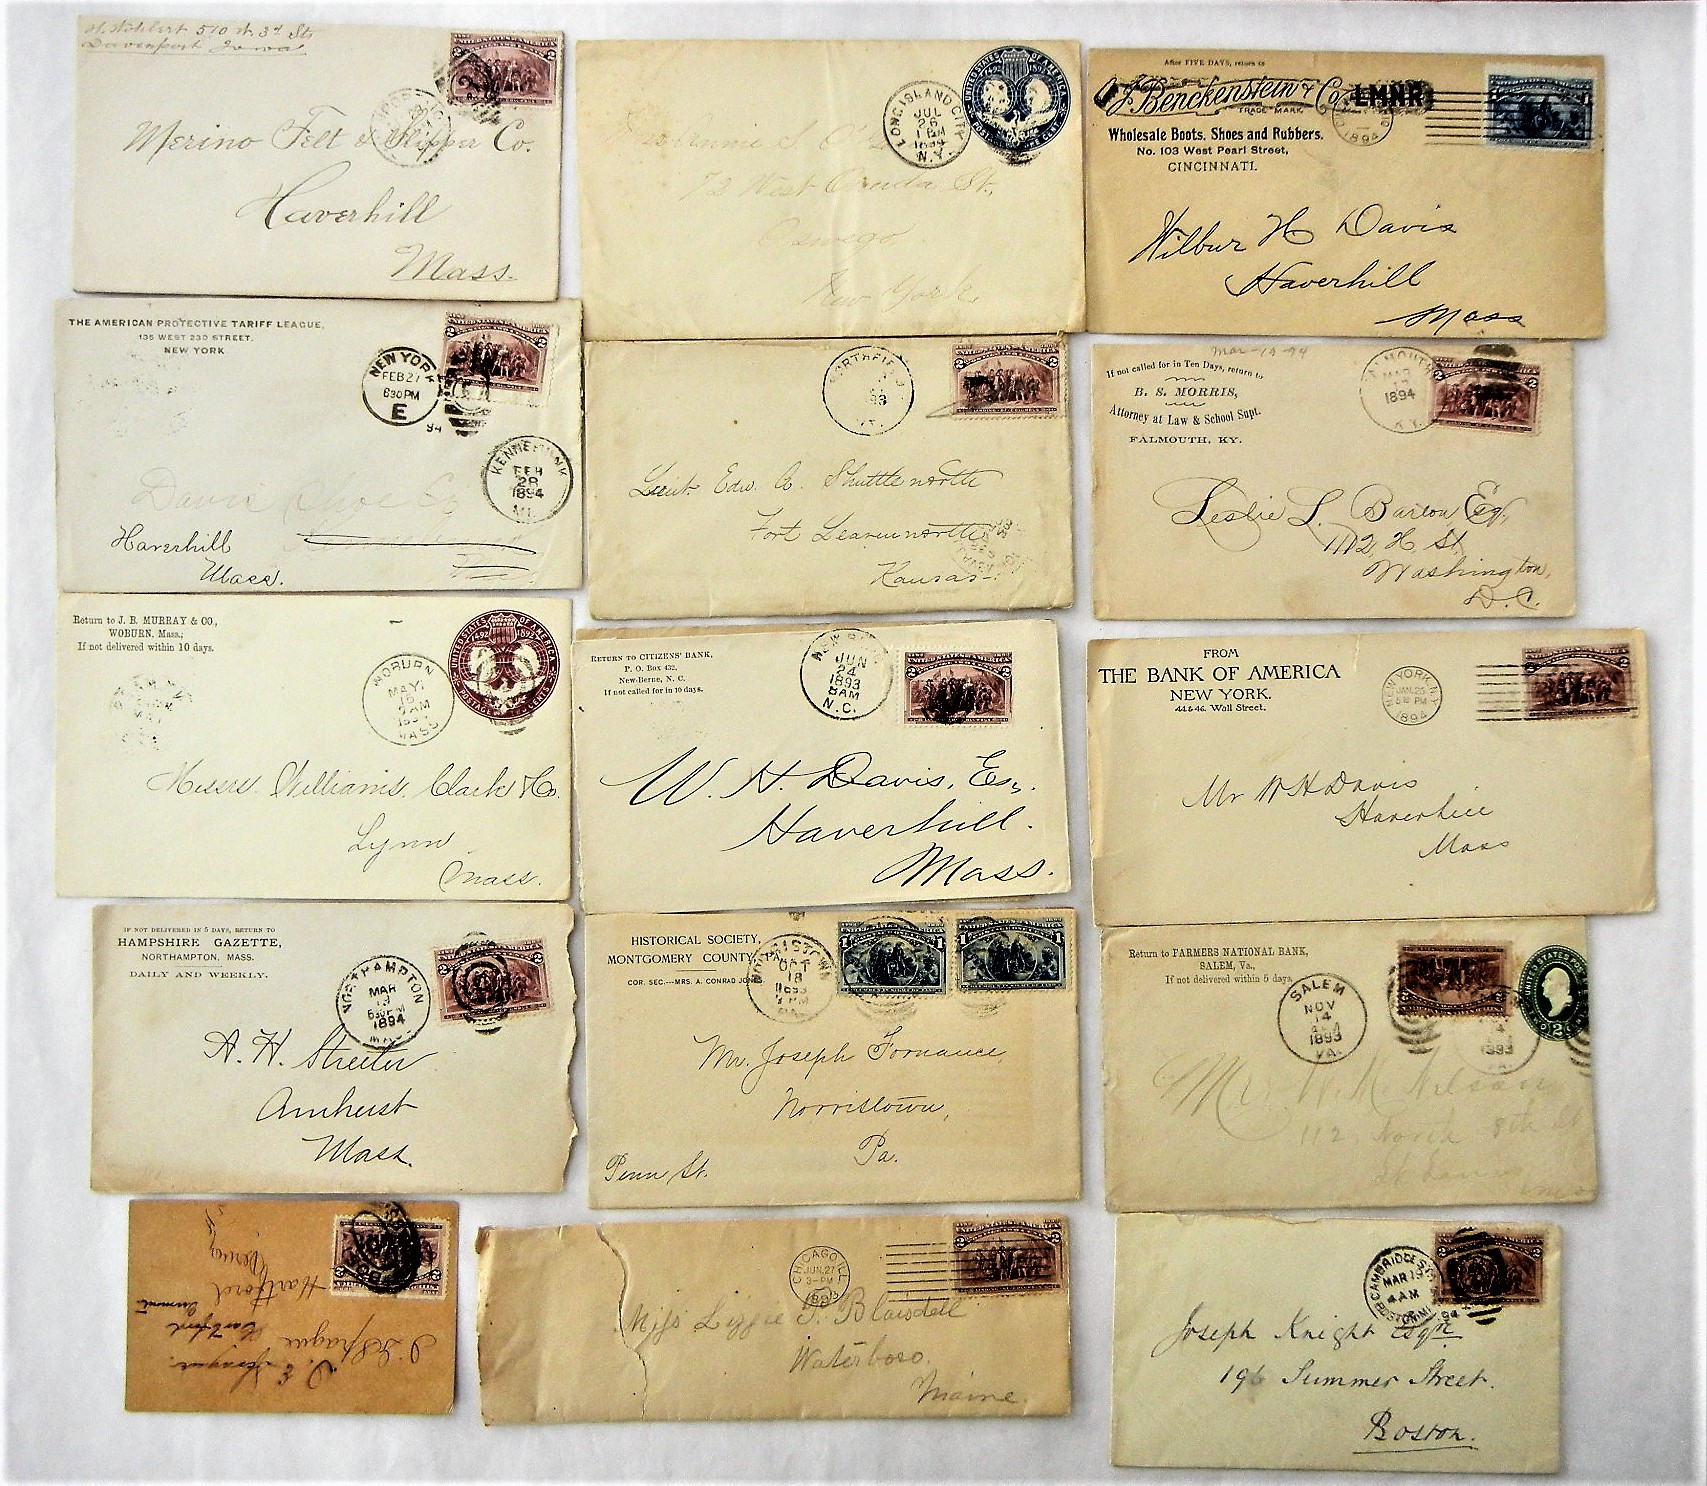 H. Wohlert 510 W. 3d St.
Davenport Iowa
Merino Felt & Slipper Co.
Haverhill
Mass.
UNITED STATES OF AMERICA
1492 1892
LONG ISLAND CITY
JUL
26
1 PM
1894
N.Y.
72 West St.,
Oswego,
New York.
After FIVE DAYS, return to
Benckenstein & Co.
TRADE MARK.
LMNR
1894
Wholesale Boots, Shoes and Rubbers.
No. 103 West Pearl Street,
CINCINNATI.
Wilbur H Davis
Haverhill
Mass
THE AMERICAN PROTECTIVE TARIFF LEAGUE,
135 WEST 23D STREET,
NEW YORK
NEW YORK
FEB 27
630 PM
E
94
KENNEBUNK
FEB
28
1894
ME.
Davis Shoe Co
Haverhill
Mass.
NORTHFIELD
93
VT.
Lieut. Edw. A. Shuttleworth
Fort Leavenworth
Kansas.
Mar-19-94
If not called for in Ten Days, return to
B. S. MORRIS,
Attorney at Law & School Supt.
FALMOUTH, KY.
FALMOUTH
MAR
1894
KY.
Leslie L. Barlow Esq,
1112 H St
Washington,
D.C.
Return to J. B. MURRAY & CO.,
WOBURN, Mass.,
If not delivered within 10 days.
WOBURN
MAY
AM
MASS
UNITED STATES OF AMERICA
1492 1892
Messrs. Williams, Clark & Co.
Lynn
Mass.
RETURN TO CITIZENS' BANK,
P. O. Box 432,
New-Berne, N. C.
If not called for in 10 days.
NEW BERNE
JUN
24
1893
8 AM
N.C.
W. H. Davis, Esq.
Haverhill.
Mass.
FROM
THE BANK OF AMERICA
NEW YORK.
44 & 46. Wall Street.
NEW YORK, N.Y.
JAN. 25
PM
1894
Mr W H Davis
Haverhill
Mass
IF NOT DELIVERED IN 5 DAYS, RETURN TO
HAMPSHIRE GAZETTE,
NORTHAMPTON, MASS.
DAILY AND WEEKLY.
NORTHAMPTON
MAR
19
630 PM
1894
MASS
A. H. Streeter
Amherst
Mass.
HISTORICAL SOCIETY,
MONTGOMERY COUNTY, PA.
COR. SEC.—MRS. A. CONRAD JONES.
NORRISTOWN
OCT
18
1893
PM
PA.
Mr. Joseph Fornance,
Norristown,
Pa.
Penn St.
Return to FARMERS NATIONAL BANK,
SALEM, Va.,
If not delivered within 5 days.
SALEM
NOV
14
1893
VA.
Mr W. M. Nelson
112 North 8th St
St Louis
Mo
J. S. Sprague
Hartford
Hartford
Vermont
CHICAGO, ILL.
JUN. 27
3-PM
1893
Miss Lizzie S. Blaisdell
Waterboro.
Maine.
CAMBRIDGE STA.
MAR 19
4 AM
94
BOSTON
Joseph Knight Esqre
196 Summer Street.
Boston.